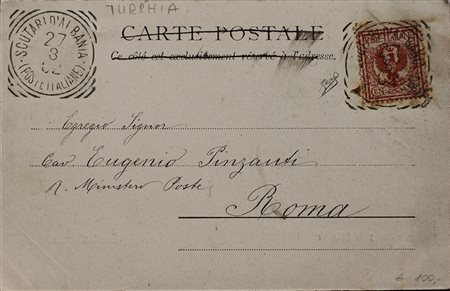 TURCHIA
CARTE POSTALE
Ce côté est exclusivement réservé à l'adresse.
SCUTARI D'ALBANIA
27
3
02
(POSTE ITALIANE)
Egregio Signor
Cav Eugenio Pinzauti
r. Ministero Poste
Roma
€ 100,-